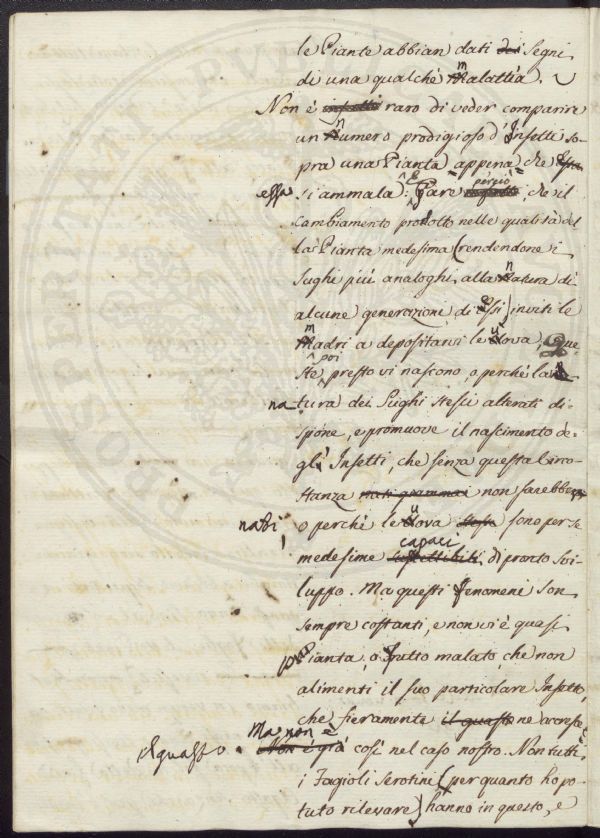 le Piante abbian dati dei Segni
di una qualche malattia.
Non è raro di veder comparire
un numero prodigioso d'Insetti so-
pra una Pianta appena che
essa si ammala: Pare perciò, che il
cambiamento prodotto nelle qualità del
la Pianta medesima (rendendone i
Sughi più analoghi alla natura di
alcune generazioni di essi) inviti le
madri a depositarvi le uova, Que-
ste poi presto vi nascono, o perchè la
na-tura dei Sughi stessi alterati di-
spone, e promuove il nascimento de-
gli Insetti, che senza questa Circo-
stanza non sarebber
nati, o perchè le uova sono per se
medesime capaci di pronto svi-
luppo. Ma questi fenomeni son
sempre costanti, e non vi è quasi
Pianta o frutto malato, che non
alimenti il suo particolare Insetto,
che fieramente ne accresce
il guasto. Ma non è già così nel caso nostro. Non tutti
i Fagioli Serotini (per quanto ho po-
tuto rilevare) hanno in questo, e